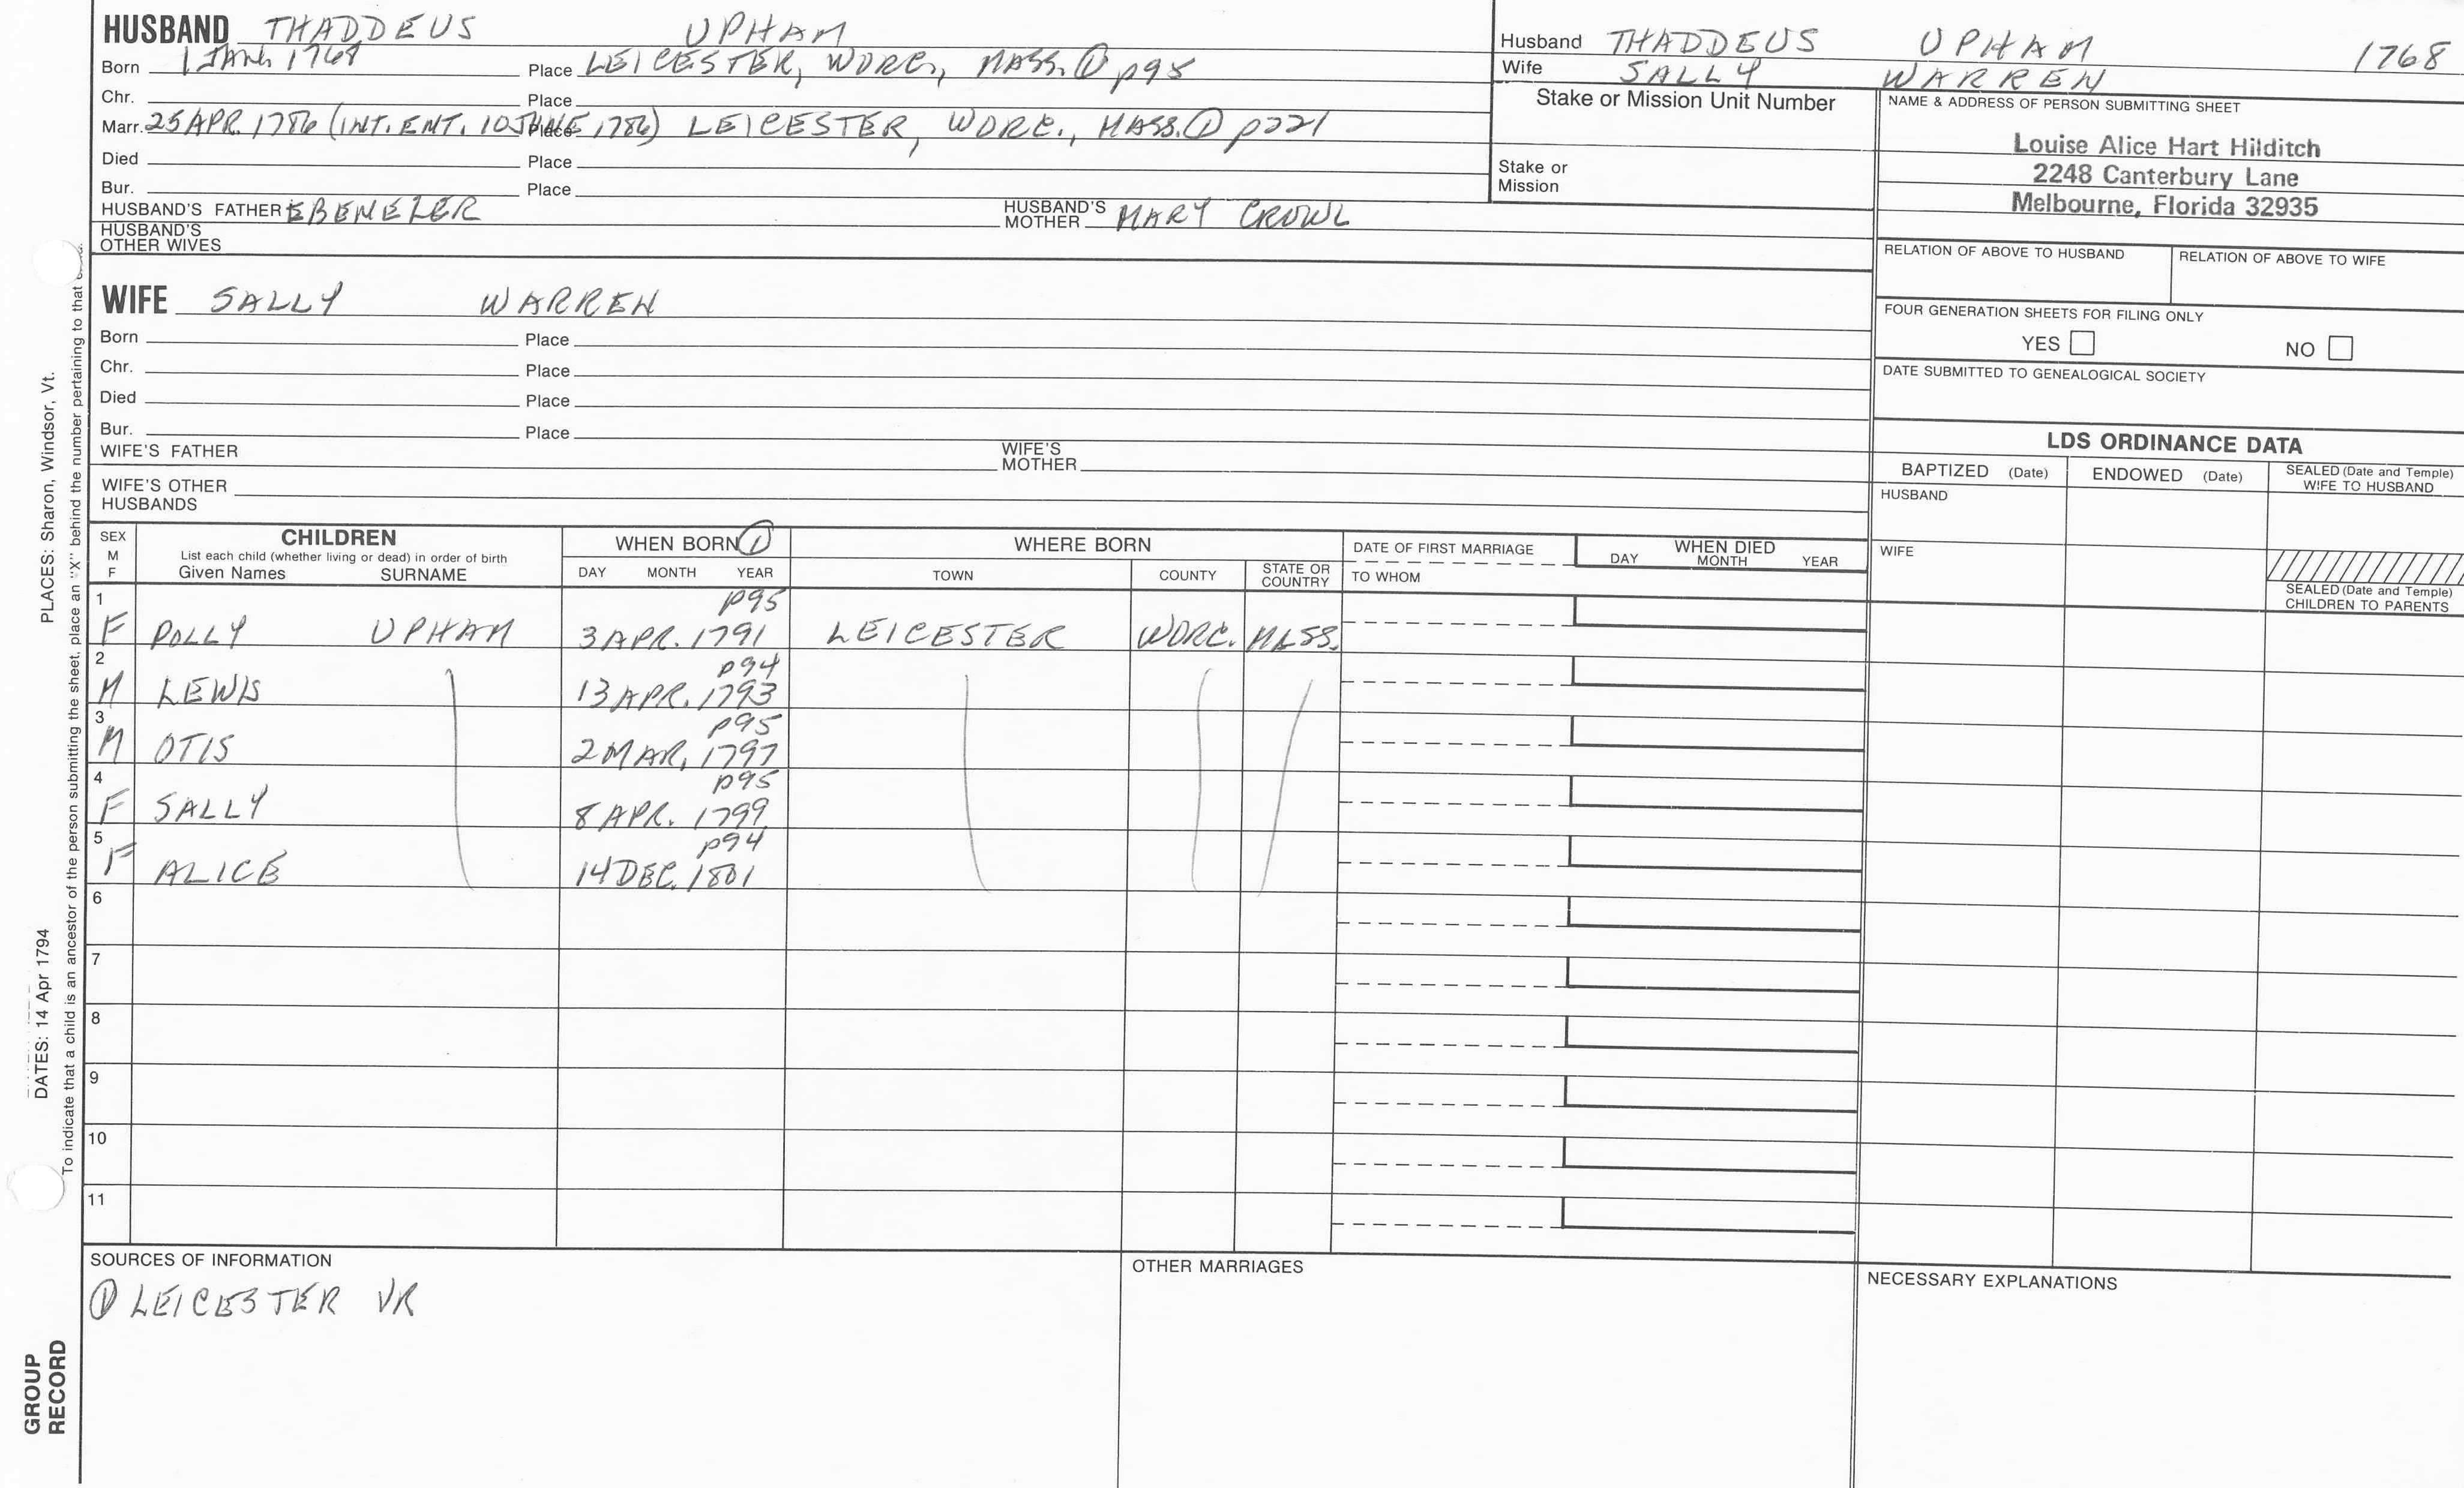 HUSBAND THADDEUS UPHAM
Born 1 JAN. 1768 Place LEICESTER, WORC., MASS. ① p95
Chr. Place
Marr. 25 APR. 1786 (INT. ENT. 10 JUNE 1786) Place LEICESTER, WORC., MASS. ① p221
Died Place
Bur. Place
HUSBAND'S FATHER EBENEZER HUSBAND'S MOTHER MARY CROWL
HUSBAND'S OTHER WIVES
Husband THADDEUS UPHAM 1768
Wife SALLY WARREN
Stake or Mission Unit Number
Stake or
Mission
NAME & ADDRESS OF PERSON SUBMITTING SHEET
Louise Alice Hart Hilditch
2248 Canterbury Lane
Melbourne, Florida 32935
RELATION OF ABOVE TO HUSBAND RELATION OF ABOVE TO WIFE
FOUR GENERATION SHEETS FOR FILING ONLY
YES NO
DATE SUBMITTED TO GENEALOGICAL SOCIETY
WIFE SALLY WARREN
Born Place
Chr. Place
Died Place
Bur. Place
WIFE'S FATHER WIFE'S MOTHER
WIFE'S OTHER
HUSBANDS
LDS ORDINANCE DATA
BAPTIZED (Date) ENDOWED (Date) SEALED (Date and Temple) WIFE TO HUSBAND
HUSBAND
WIFE
SEALED (Date and Temple)
CHILDREN TO PARENTS
SEX M F
CHILDREN
List each child (whether living or dead) in order of birth
Given Names SURNAME
WHEN BORN ①
DAY MONTH YEAR
WHERE BORN
TOWN COUNTY STATE OR COUNTRY
DATE OF FIRST MARRIAGE
TO WHOM
WHEN DIED
DAY MONTH YEAR
1 p95
F POLLY UPHAM 3 APR. 1791 LEICESTER WORC. MASS.
2 p94
M LEWIS 13 APR. 1793
3 p95
M OTIS 2 MAR. 1797
4 p95
F SALLY 8 APR. 1799
5 p94
F ALICE 14 DEC. 1801
6
7
8
9
10
11
SOURCES OF INFORMATION
① LEICESTER VR
OTHER MARRIAGES
NECESSARY EXPLANATIONS
PLACES: Sharon, Windsor, Vt.
DATES: 14 Apr 1794
To indicate that a child is an ancestor of the person submitting the sheet, place an "X" behind the number pertaining to that
GROUP
RECORD